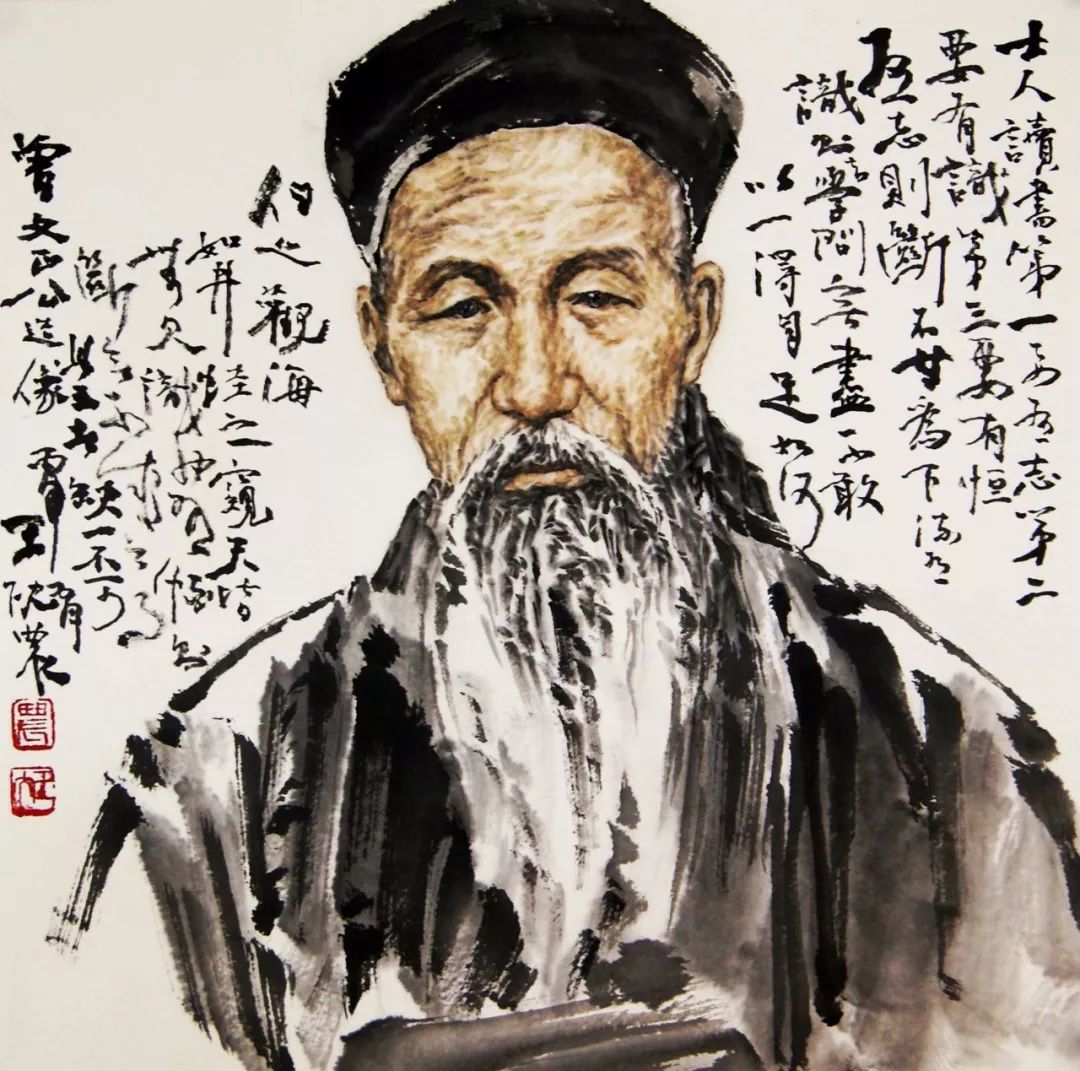 士人讀書第一要有志第二
要有識第三要有恒
有志則斷不甘為下流有
識知學問無盡不敢
以一得自足如河
伯之觀海
如井蛙之窺天皆
無見識也有恒則
斷無不成之事
此三者缺一不可
曾文正公造像